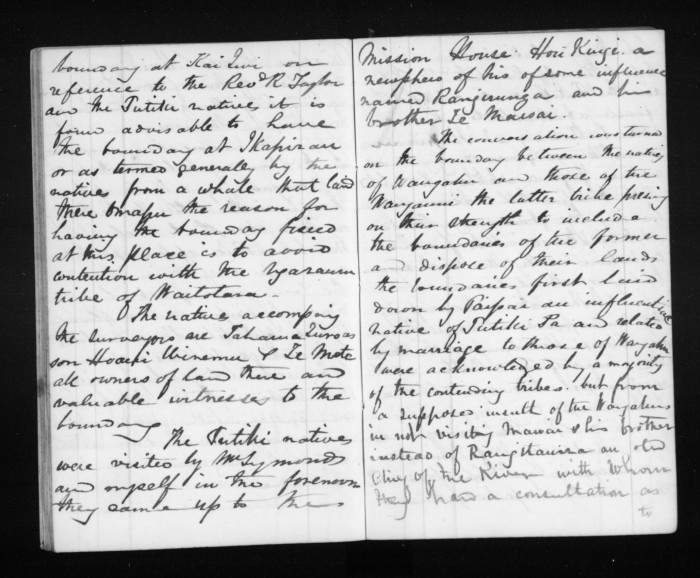 boundary at Kai Iwi on
reference to the Revd R Taylor
and the Putiki natives it is
found advisable to have
the boundary at Ikapirau
or as termed generally by the
natives from a whale that laid
there Omapu the reason for
having the boundary fixed
at this place is to avoid
contention with the Ngarauru
tribe of Waitotara.
The native accompying
the surveyors are Tahana
son Hoani Wiremu & Te Mote
all owners of land there and
valuable witnesses to the
boundary
The Putiki natives
were visited by Mr Symonds
and myself in the forenoon
they came up to the
Mission House. Hori Kingi. a
newphew of his of some influence
named Rangirunga and his
brother Te Mawai.
The conversation was turned
on the boundary between the natives
of Wangahu and those of the
Wanganui the latter tribe pressing
on their strength to include
the boundaries of the former
and dispose of their lands
the boundaries first laid
down by Paipai an influential
native of Putiki Pa and related
by marriage to those of Wangahu
were acknowledged by a majority
of the contending tribes. but from
a supposed insult of the Wangahus
in not visiting Mawai & his brother
instead of Rangitauira an old
Chief of the River with whom
they had a consultation as
to